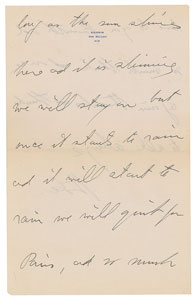 long as the sun shines
here ad it is shining
we will stay on but
once it starts to rain
ad it will start to
rain we will quit for
Paris, ad so much